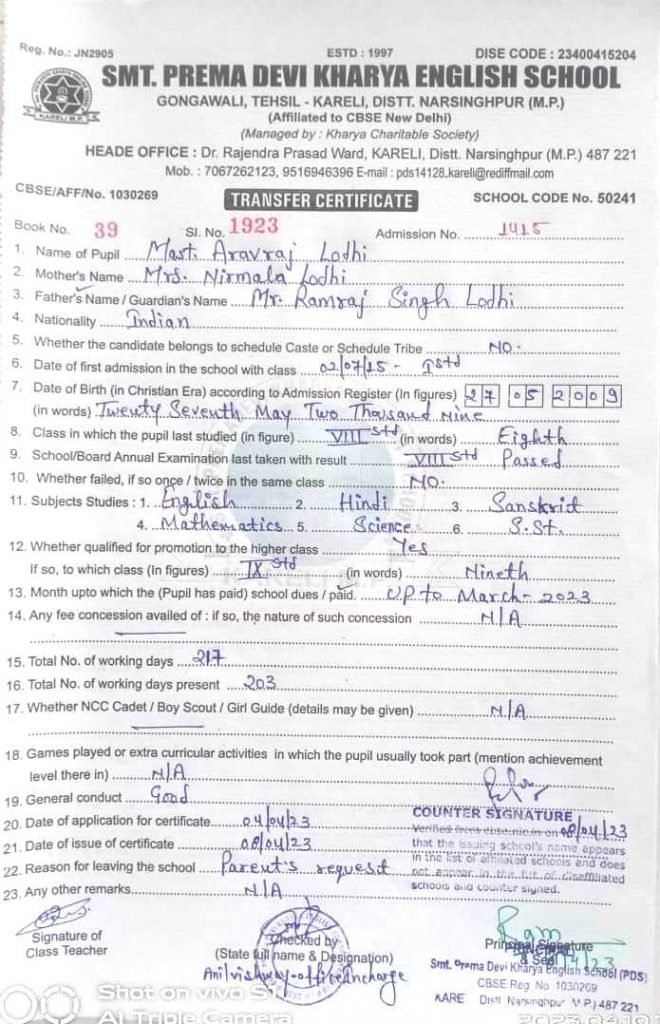 Reg. No.: JN2905 ESTD : 1997 DISE CODE : 23400415204
SMT. PREMA DEVI KHARYA ENGLISH SCHOOL
KARELI M.P.
GONGAWALI, TEHSIL - KARELI, DISTT. NARSINGHPUR (M.P.)
(Affiliated to CBSE New Delhi)
(Managed by : Kharya Charitable Society)
HEADE OFFICE : Dr. Rajendra Prasad Ward, KARELI, Distt. Narsinghpur (M.P.) 487 221
Mob. : 7067262123, 9516946396 E-mail : pds14128.kareli@rediffmail.com
CBSE/AFF/No. 1030269 TRANSFER CERTIFICATE SCHOOL CODE No. 50241
Book No. 39 Sl. No. 1923 Admission No. 1415
1. Name of Pupil Mast. Aravraj Lodhi
2. Mother's Name Mrs. Nirmala Lodhi
3. Father's Name / Guardian's Name Mr. Ramraj Singh Lodhi
4. Nationality Indian
5. Whether the candidate belongs to schedule Caste or Schedule Tribe NO.
6. Date of first admission in the school with class 02/07/15 - Istd
7. Date of Birth (in Christian Era) according to Admission Register (In figures) 27 05 2009
(in words) Twenty Seventh May Two Thousand Nine
8. Class in which the pupil last studied (in figure) VIII Std (in words) Eighth
9. School/Board Annual Examination last taken with result VIII Std Passed
10. Whether failed, if so once / twice in the same class NO.
11. Subjects Studies : 1. English 2. Hindi 3. Sanskrit
4. Mathematics 5. Science 6. S.St.
12. Whether qualified for promotion to the higher class Yes
If so, to which class (In figures) IX Std (in words) Nineth
13. Month upto which the (Pupil has paid) school dues / paid. UP to March - 2023
14. Any fee concession availed of : if so, the nature of such concession N/A
15. Total No. of working days 217
16. Total No. of working days present 203
17. Whether NCC Cadet / Boy Scout / Girl Guide (details may be given) N/A
18. Games played or extra curricular activities in which the pupil usually took part (mention achievement
level there in) N/A
19. General conduct Good
20. Date of application for certificate 04/04/23
21. Date of issue of certificate 08/04/23
22. Reason for leaving the school Parent's request
23. Any other remarks N/A
COUNTER SIGNATURE
Verified from cbse.nic.in on 08/04/23
that the issuing school's name appears
in the list of affiliated schools and does
not appear in the list of disaffiliated
schools and counter signed.
Signature of
Class Teacher
Checked by
(State full name & Designation)
Anil vishway-office Incharge
Ram
Principal Signature
PRINCIPAL
& Seal
Smt. Prema Devi Kharya English School (PDS)
CBSE Reg No. 1030269
KARE Distt Narsinghpur M.P.) 487 221
Shot on vivo S1
AI Triple Camera